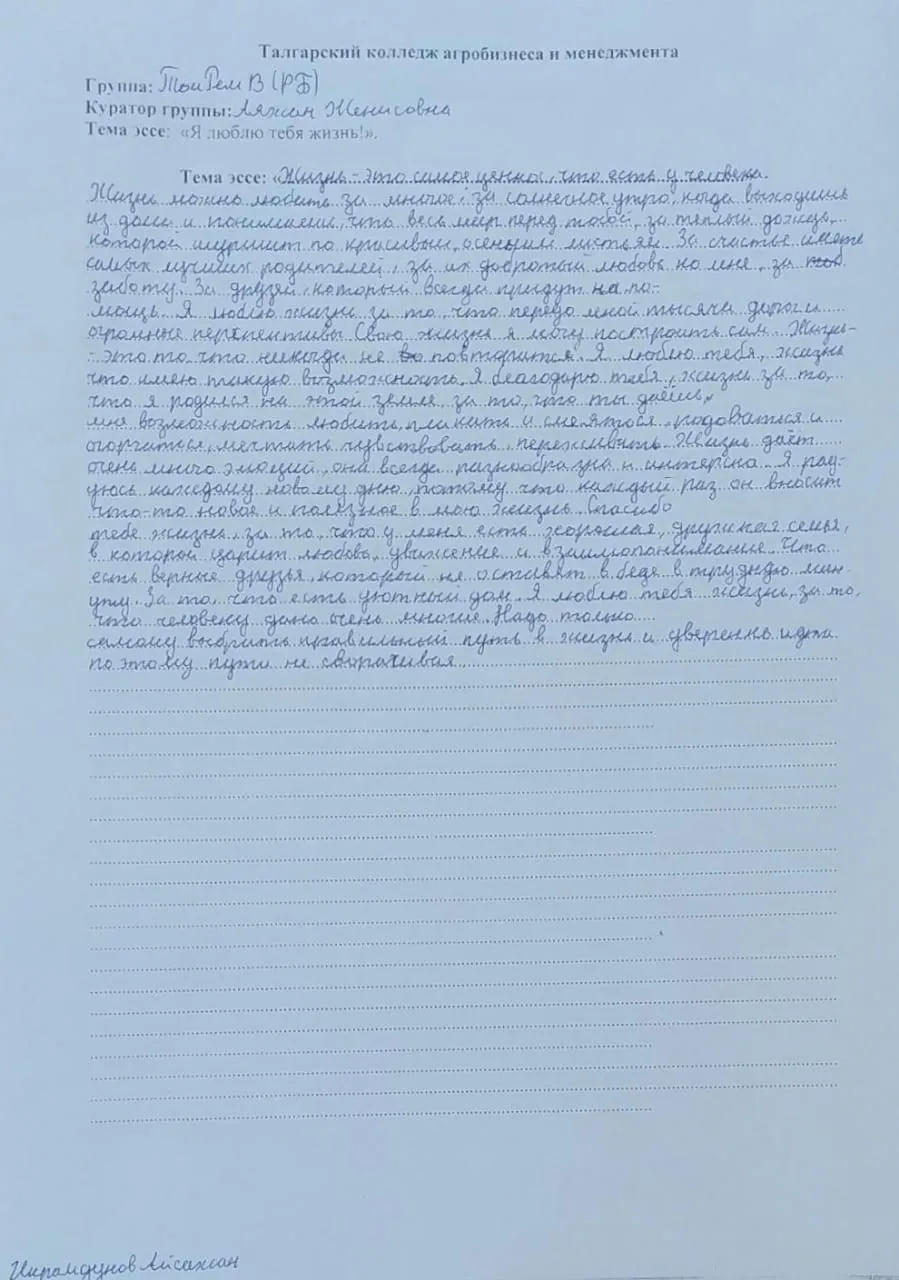 Талгарский колледж агробизнеса и менеджмента
Группа: ТоиРем В (РБ)
Куратор группы: Аяжан Женисовна
Тема эссе: «Я люблю тебя жизнь!».
Тема эссе: «Жизнь – это самое ценное, что есть у человека.
Жизнь можно любить за многое: за солнечное утро, когда выходишь
из дома и понимаешь, что весь мир перед тобой, за тёплый дождь,
который шуршит по красивым осенним листьям. За счастье иметь
самых лучших родителей, за их доброту и любовь ко мне, за
заботу. За друзей, который всегда придут на по-
мощь. Я люблю жизнь за то, что передо мной тысячи дорог и
огромные перспективы. Свою жизнь я могу построить сам. Жизнь-
- это то, что никогда не повторится. Я люблю тебя, жизнь
что имею такую возможность. Я благодарю тебя, жизнь за то,
что я родился на этой земле, за то, что ты даёшь
мне возможность любить, плакать и смеяться, радоваться и
огорчаться, мечтать, чувствовать, переживать. Жизнь даёт
очень много эмоций, она всегда разнообразна и интересна. Я рад-
уюсь каждому новому дню, потому что каждый раз он вносит
что-то новое и полезное в мою жизнь. Спасибо
тебе жизнь, за то, что у меня есть хорошая, дружная семья,
в которой царит любовь, уважение и взаимопонимание. Что
есть верные друзья, который не оставят в беде в трудную мин-
уту. За то, что есть уютный дом. Я люблю тебя жизнь, за то,
что человеку дано очень многое. Надо только
самому выбрать правильный путь в жизни и уверенно идти
по этому пути не сворачивая.
Икрамдунов Айсажан